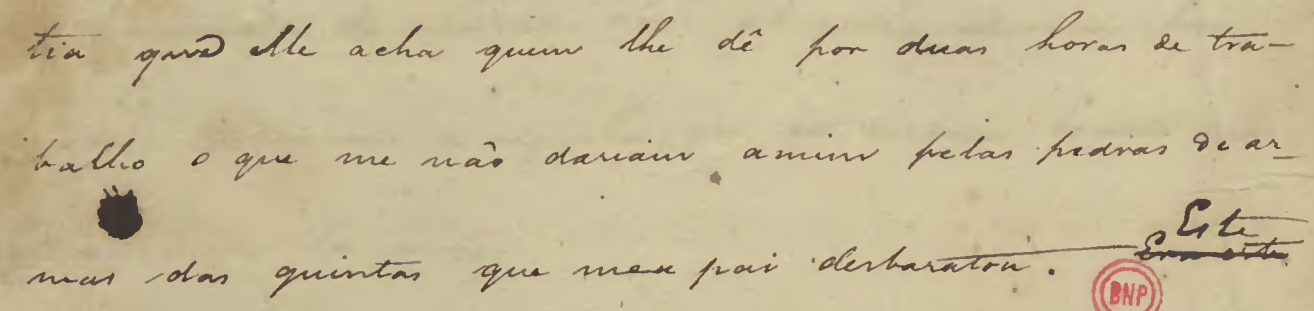 tia que elle acha quem lhe dê por duas horas de tra-
balho o que me não dariam a mim pelas pedras de ar-
Este
mas das quintas que meu pai desbaratou. Era este
BNP